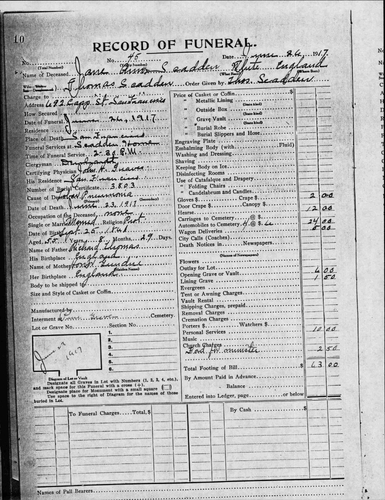 10
RECORD OF FUNERAL.
No. 45 Date June 26, 1917
(Total Number) (Yearly Number)
Name of Deceased Jane Scadden White England
Charge to Thomas Scadden Order Given by Thos. Scadden
Address 692 Capp St San Francisco
Date of Funeral June 1917
Residence
Place of Death San Francisco
Funeral Services at Scadden Home
Time of Funeral Service 2:30 P.M
Clergyman Dr
Certifying Physician John H. Graves
His Residence San Francisco
Number of Burial Certificate 3803
Cause of Death Pneumonia
Date of Death June 23, 1917
Occupation of the Deceased none
Single or Married Religion Prot
Date of Birth Sept. 25 1861
Aged 55 Years 8 Months 29 Days
Name of Father Richard Thomas
His Birthplace England
Name of Mother
Her Birthplace England
Body to be shipped to
Size and Style of Casket or Coffin
Manufactured by
Interment Cemetery
Lot or Grave No. Section No.
June 1917
Diagram of Lot or Vault
Designate all Graves in Lot with Numbers (1, 2, 3, 4, etc.),
and mark space for this Funeral with a cross (+).
Designate place for Monument with a small square
Use space to right of Diagram for the names of those
buried in Lot.
Price of Casket or Coffin
" Metallic Lining
(State kind)
" Outside Box
(State kind)
" Grave Vault
(State kind)
" Burial Robe
" Burial Slippers and Hose
Engraving Plate
Embalming Body (with Fluid)
Washing and Dressing
Shaving
Keeping Body on Ice
Disinfecting Rooms
Use of Catafalque and Drapery
" Folding Chairs
" Candelabrum and Candles
Gloves $ Crape $ 2 00
Door Crape $ Canopy $
Hearse 12 00
Carriages to Cemetery @ $
Automobiles to Cemetery 4 @ $ 6 24 00
Wagon Deliveries 5 00
City Calls (Coaches)
Death Notices in Newspapers
Flowers
Outlay for Lot 6 00
Opening Grave or Vault 1 50
Lining Grave
Evergreen
Tent or Awning Charges
Vault Rental
Shipping Charges, prepaid
Removal Charges
Cremation Charges
Porters $ Watchers $
Personal Services 10 00
Music
Church Charges
Paid for minister 2 50
Total Footing of Bill 63 00
By Amount Paid in Advance
" Balance
Entered into Ledger, page or below
To Funeral Charges Total $
By Cash $
Names of Pall Bearers